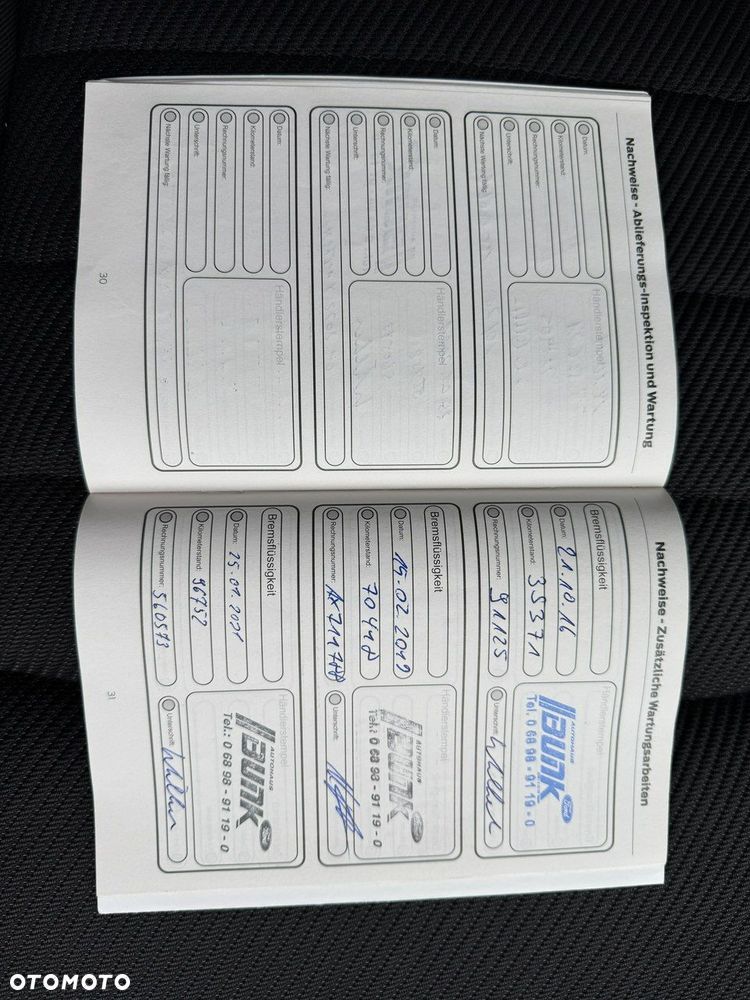 Nachweise - Ablieferungs-Inspektion und Wartung
Datum:
Kilometerstand:
Rechnungsnummer:
Unterschrift:
Nächste Wartung fällig:
Händlerstempel
Datum:
Kilometerstand:
Rechnungsnummer:
Unterschrift:
Nächste Wartung fällig:
Händlerstempel
Datum:
Kilometerstand:
Rechnungsnummer:
Unterschrift:
Nächste Wartung fällig:
Händlerstempel
30
Nachweise - Zusätzliche Wartungsarbeiten
Bremsflüssigkeit
Datum: 21.10.16
Kilometerstand: 35371
Rechnungsnummer: 91125
Händlerstempel
AUTOHAUS
BUNK
Ford
Tel.: 0 68 98 - 91 19 - 0
Unterschrift:
Bremsflüssigkeit
Datum: 15.02.2019
Kilometerstand: 70448
Rechnungsnummer:
Händlerstempel
AUTOHAUS
BUNK
Ford
Tel.: 0 68 98 - 91 19 - 0
Unterschrift:
Bremsflüssigkeit
Datum: 25.01.2021
Kilometerstand: 96752
Rechnungsnummer: 560573
Händlerstempel
AUTOHAUS
BUNK
Ford
Tel.: 0 68 98 - 91 19 - 0
Unterschrift:
31
OTOMOTO